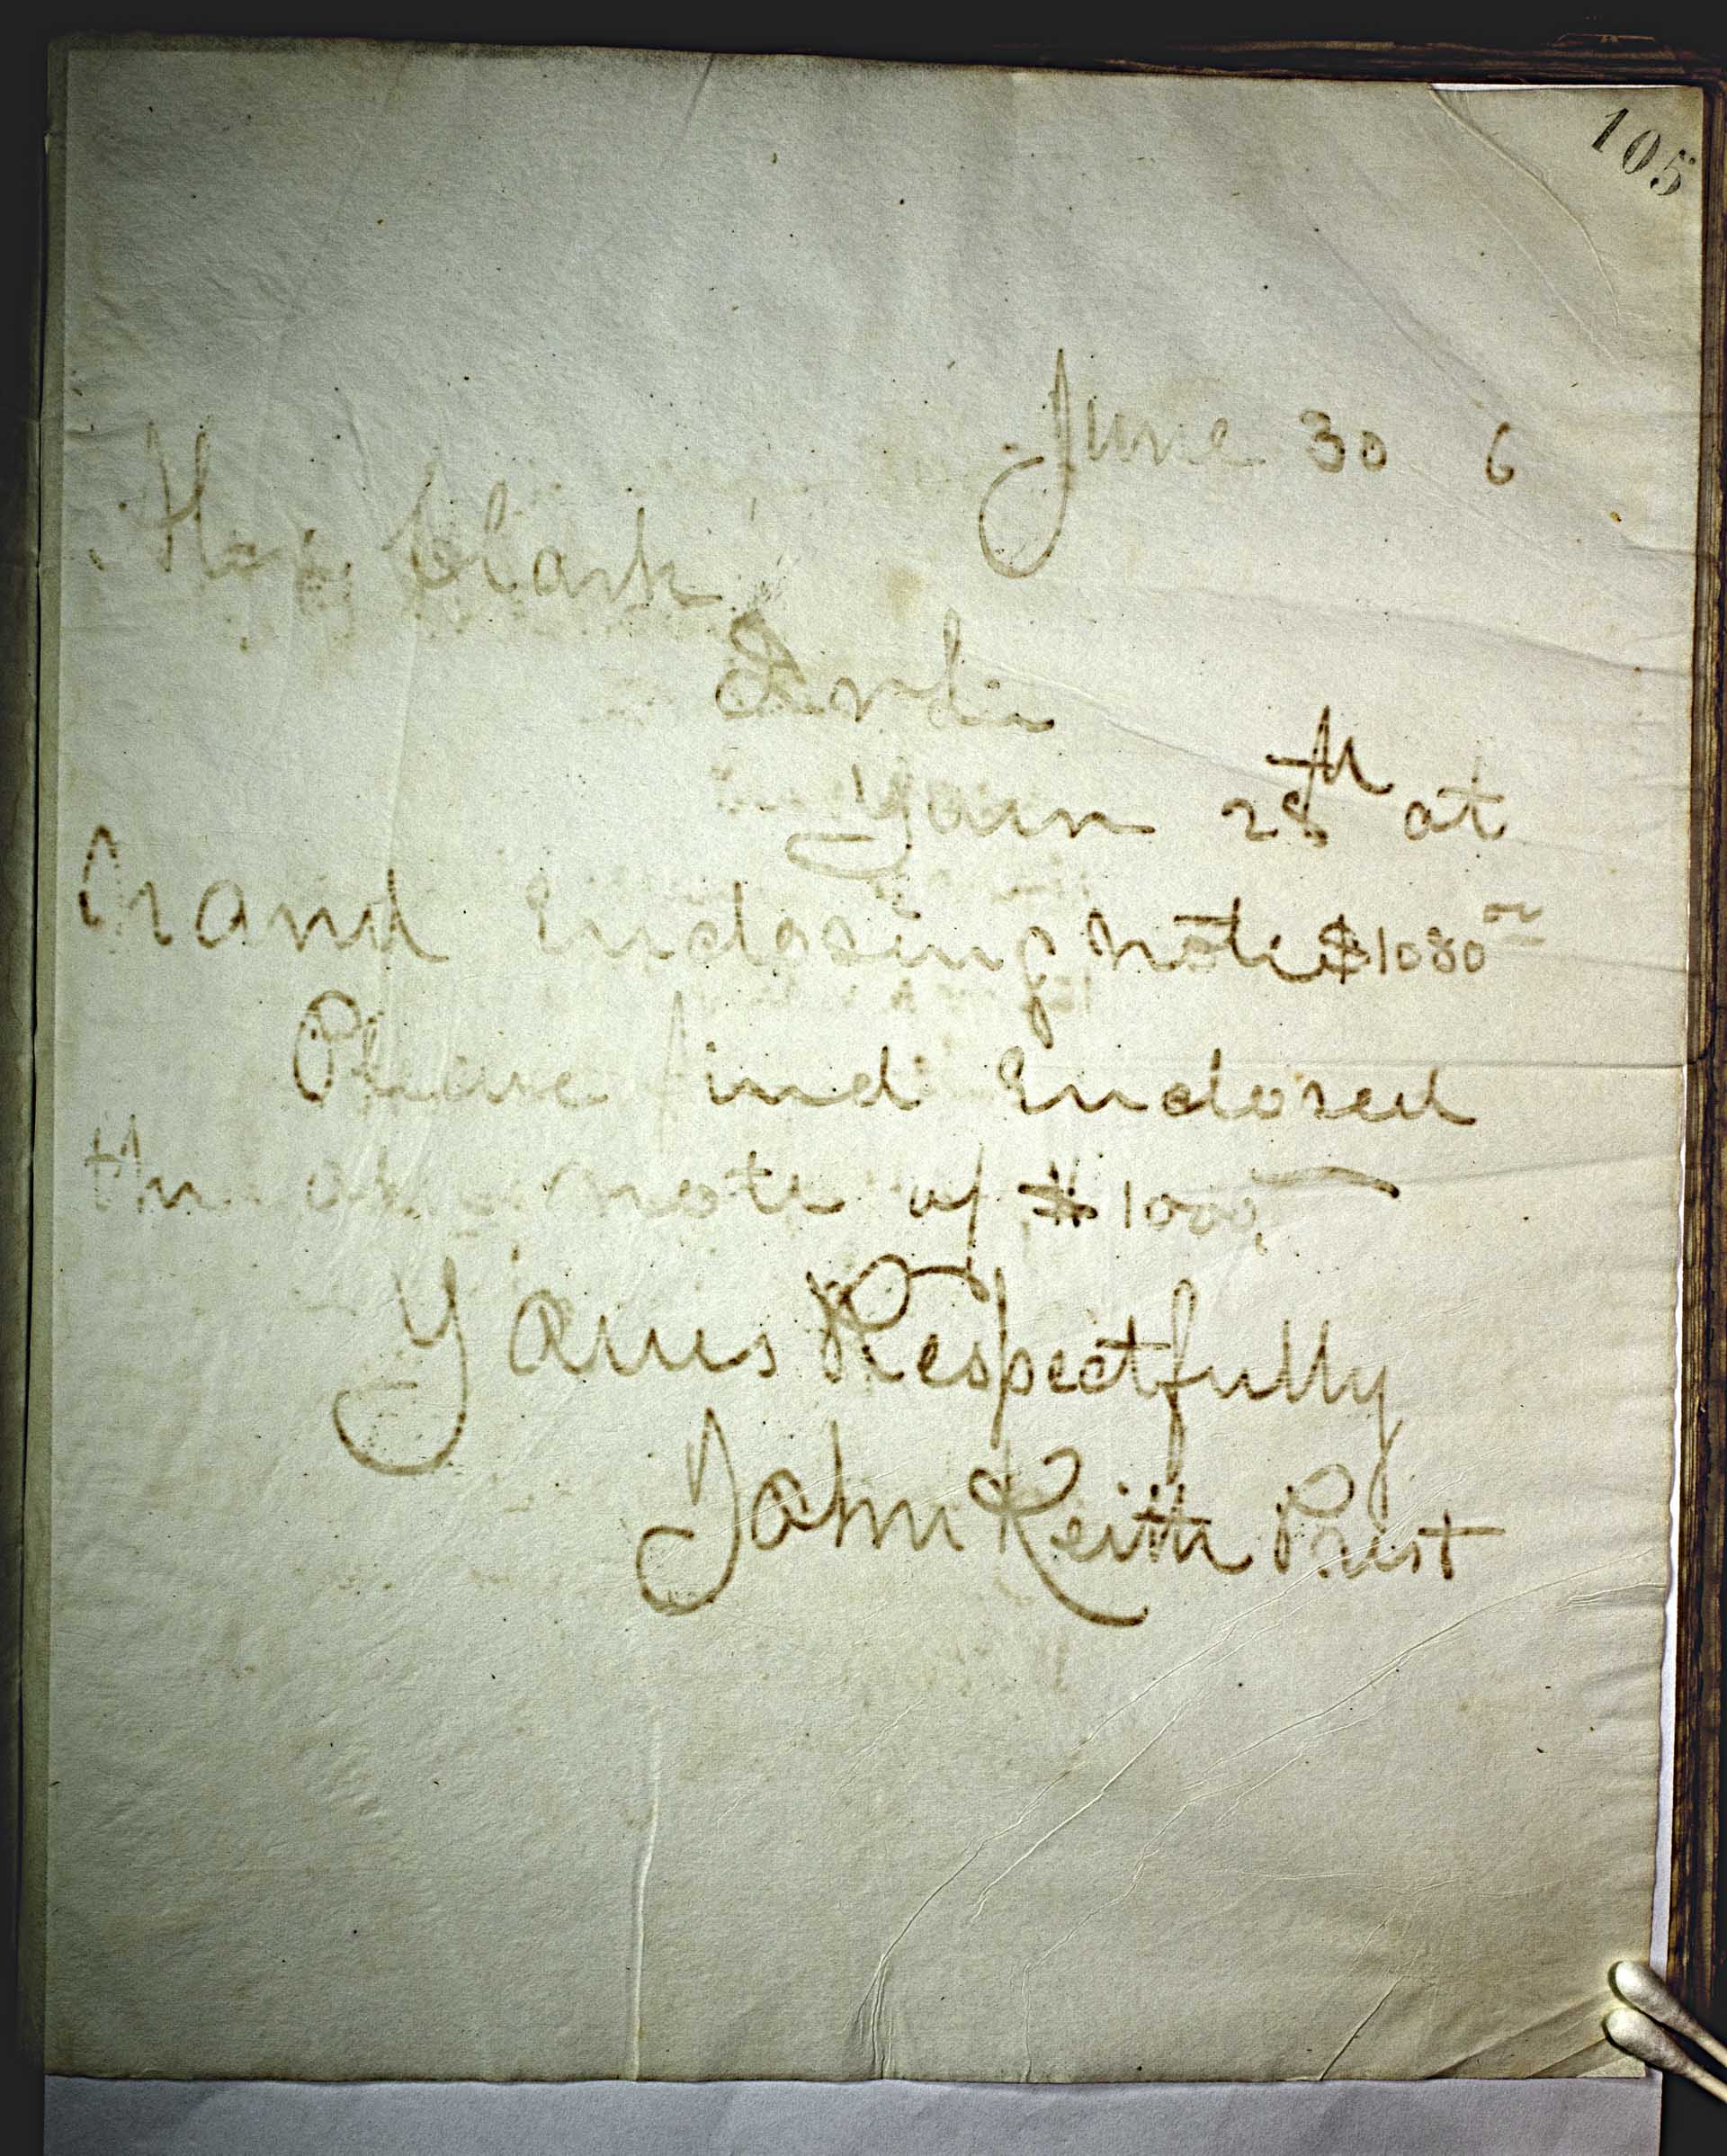 105
June 30 6
Clark
Yours 28th at
hand Enclosing note $1080 00
Please find Enclosed
the note of $1000,
Yours Respectfully
John Keith Priest